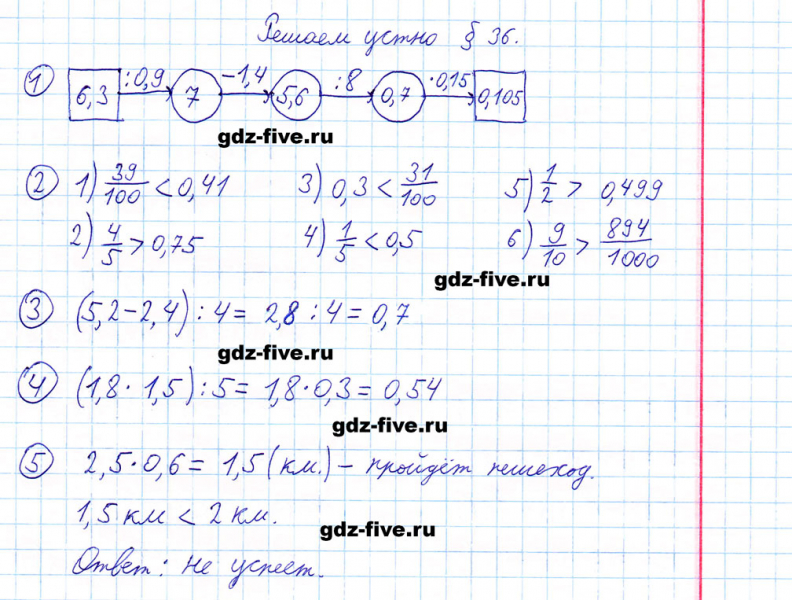 Решаем устно § 36.
① 6,3 :0,9 7 -1,4 5,6 :8 0,7 ·0,15 0,105
gdz-five.ru
② 1) 39/100 < 0,41 3) 0,3 < 31/100 5) 1/2 > 0,499
2) 4/5 > 0,75 4) 1/5 < 0,5 6) 9/10 > 894/1000
gdz-five.ru
③ (5,2-2,4) : 4 = 2,8 : 4 = 0,7
gdz-five.ru
④ (1,8 · 1,5) : 5 = 1,8 · 0,3 = 0,54
gdz-five.ru
⑤ 2,5 · 0,6 = 1,5 (км.) – пройдёт пешеход.
1,5 км < 2 км.
gdz-five.ru
Ответ: не успеет.